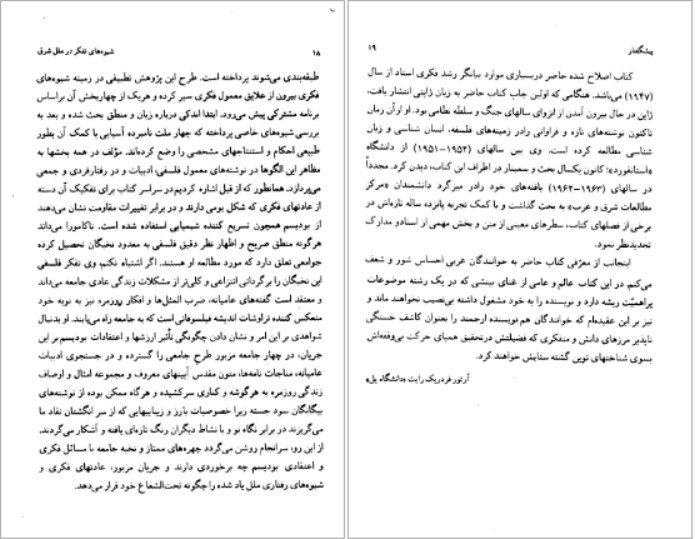 ۱۸ شیوه‌های تفکر در ملل شرق
طبقه‌بندی می‌شوند پرداخته است. طرح این پژوهش تطبیقی در زمینه شیوه‌های
فکری بیرون از علایق معمول فکری سیر کرده و هریک از چهاربخش آن براساس
برنامه مشترکی پیش می‌رود. ابتدا اندکی درباره زبان و منطق بحث شده و بعد به
بررسی شیوه‌های خاصی پرداخته که چهار ملت نامبرده آسیایی با کمک آن بطور
طبیعی احکام و استنتاجهای مشخصی را وضع کرده‌اند. مؤلف در همه بخشها به
مظاهر این الگوها در نوشته‌های معمول فلسفی، ادبیات و در رفتارفردی و جمعی
می‌پردازد. همانطور که از قبل اشاره کردیم در سراسر کتاب برای تفکیک آن دسته
از عادتهای فکری که شکل بومی دارند و در برابر تغییرات مقاومت نشان می‌دهند
از بودیسم همچون تسریح کننده شیمیایی استفاده شده است. ناکامورا می‌داند
هرگونه منطق صریح و اظهار نظر دقیق فلسفی به معدود نخبگان تحصیل کرده
جوامعی تعلق دارد که مورد مطالعه او هستند. اگر اشتباه نکنم، وی تفکر فلسفی
این نخبگان را برگردانی انتزاعی و کلی‌تر از مشکلات زندگی عادی جامعه می‌داند
و معتقد است گفته‌های عامیانه، ضرب المثل‌ها و افکار روزمره نیز به نوبه خود
منعکس کننده تراوشات اندیشه فیلسوفانی است که به جامعه راه می‌یابند. او بدنبال
شواهدی بر این امر و نشان دادن چگونگی تأثیر ارزشها و اعتقادات بودیسم بر این
جریان، در چهار جامعه مزبور طرح جامعی را گسترده و در جستجوی ادبیات
عامیانه، مناجات نامه‌ها، متون مقدس آیینهای معروف و مجموعه امثال و اوصاف
زندگی روزمره به هرگوشه و کناری سرکشیده و هرگاه ممکن بوده از نوشته‌های
بیگانگان سود جسته زیرا خصوصیات بارز و زیباییهایی که از سر انگشتان نقاد ما
می‌گریزند در برابر نگاه نو و با نشاط دیگران رنگ تازه‌ای یافته و آشکار می‌گردند.
از این رو، سرانجام روشن می‌گردد چهره‌های ممتاز و نخبه جامعه با مسائل فکری
و اعتقادی بودیسم چه برخوردی دارند و جریان مزبور، عادتهای فکری و
شیوه‌های رفتاری ملل یاد شده را چگونه تحت‌الشعاع خود قرار می‌دهد.
پیشگفتار ۱۹
کتاب اصلاح شده حاضر دربسیاری موارد بیانگر رشد فکری استاد از سال
(۱۹۴۷) می‌باشد. هنگامی که اولین چاپ کتاب حاضر به زبان ژاپنی انتشار یافت،
ژاپن در حال بیرون آمدن از انزوای سالهای جنگ و سلطه نظامی بود. او از آن زمان
تاکنون نوشته‌های تازه و فراوانی رادر زمینه‌های فلسفه، انسان شناسی و زبان
شناسی مطالعه کرده است. وی بین سالهای (۱۹۵۲–۱۹۵۱) از دانشگاه
«استانفورد»؛ کانون یکسال بحث و سمینار در اطراف این کتاب، دیدن کرد. مجدداً
در سالهای (۱۹۶۳–۱۹۶۲) یافته‌های خود رادر میزگرد دانشمندان «مرکز
مطالعات شرق و غرب» به بحث گذاشت و با کمک تجربه پانزده ساله تازه‌اش در
برخی از فصلهای کتاب، سطرهای معینی از متن و بخش مهمی از اسنادو مدارک
تجدیدنظر نمود.
اینجانب از معرّفی کتاب حاضر به خوانندگان غربی احساس شور و شعف
می‌کنم در این کتاب عالم و عامی از غنای بینشی که در یک رشته موضوعات
پراهمیّت ریشه دارد و نویسنده را به خود مشغول داشته بی‌نصیب نخواهند ماند و
نیز بر این عقیده‌ام که خوانندگان هم‌نویسنده ارجمند را بعنوان کاشف خستگی
ناپذیر مرزهای دانش و متفکری که فضیلتش در تحقیق همپای حرکت بی‌وقفه‌اش
بسوی شناختهای نوین گشته ستایش خواهند کرد.
آرتور فردریک رایت «دانشگاه یل»